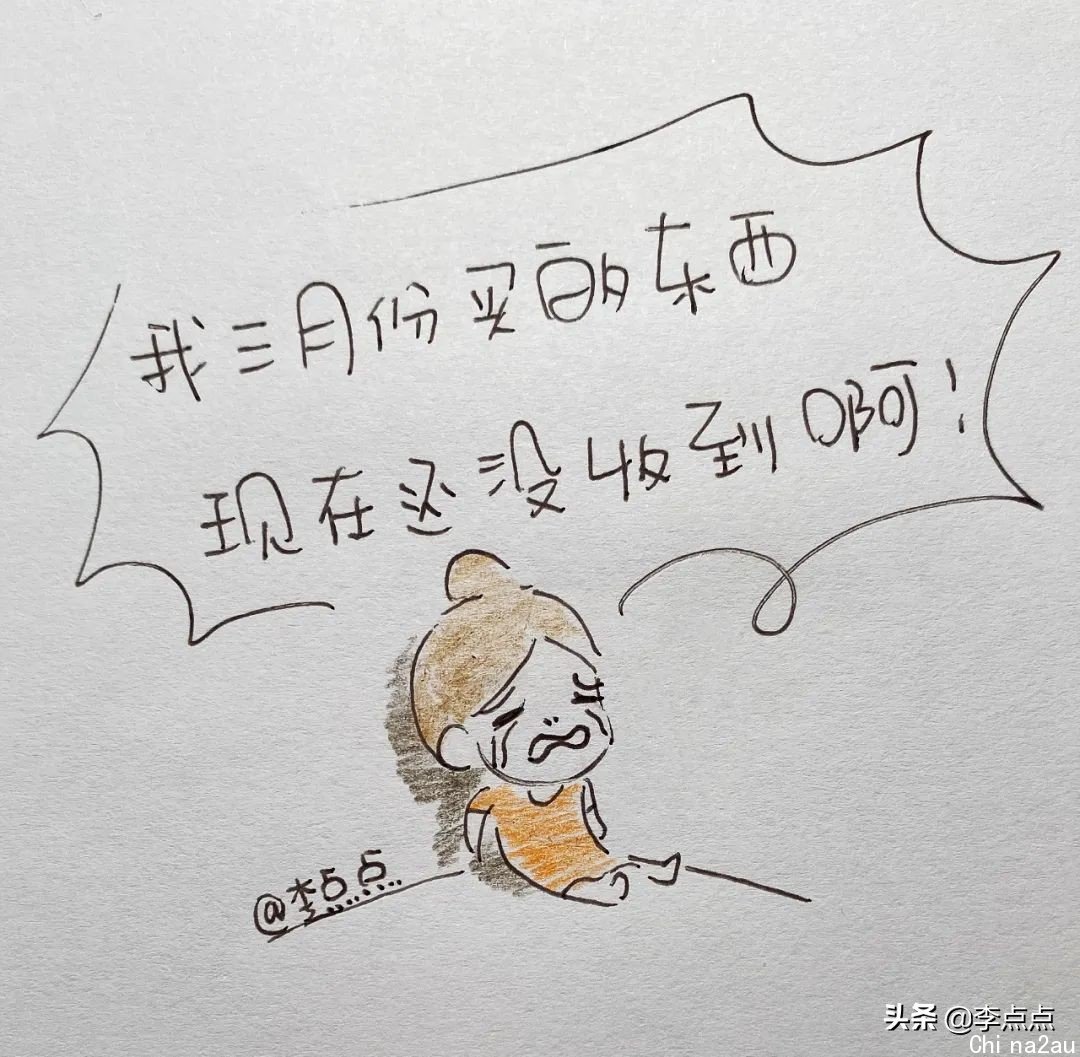 我三月份买的东西
现在还没收到啊！
@李点点...
头条 @李点点
Chi na2au